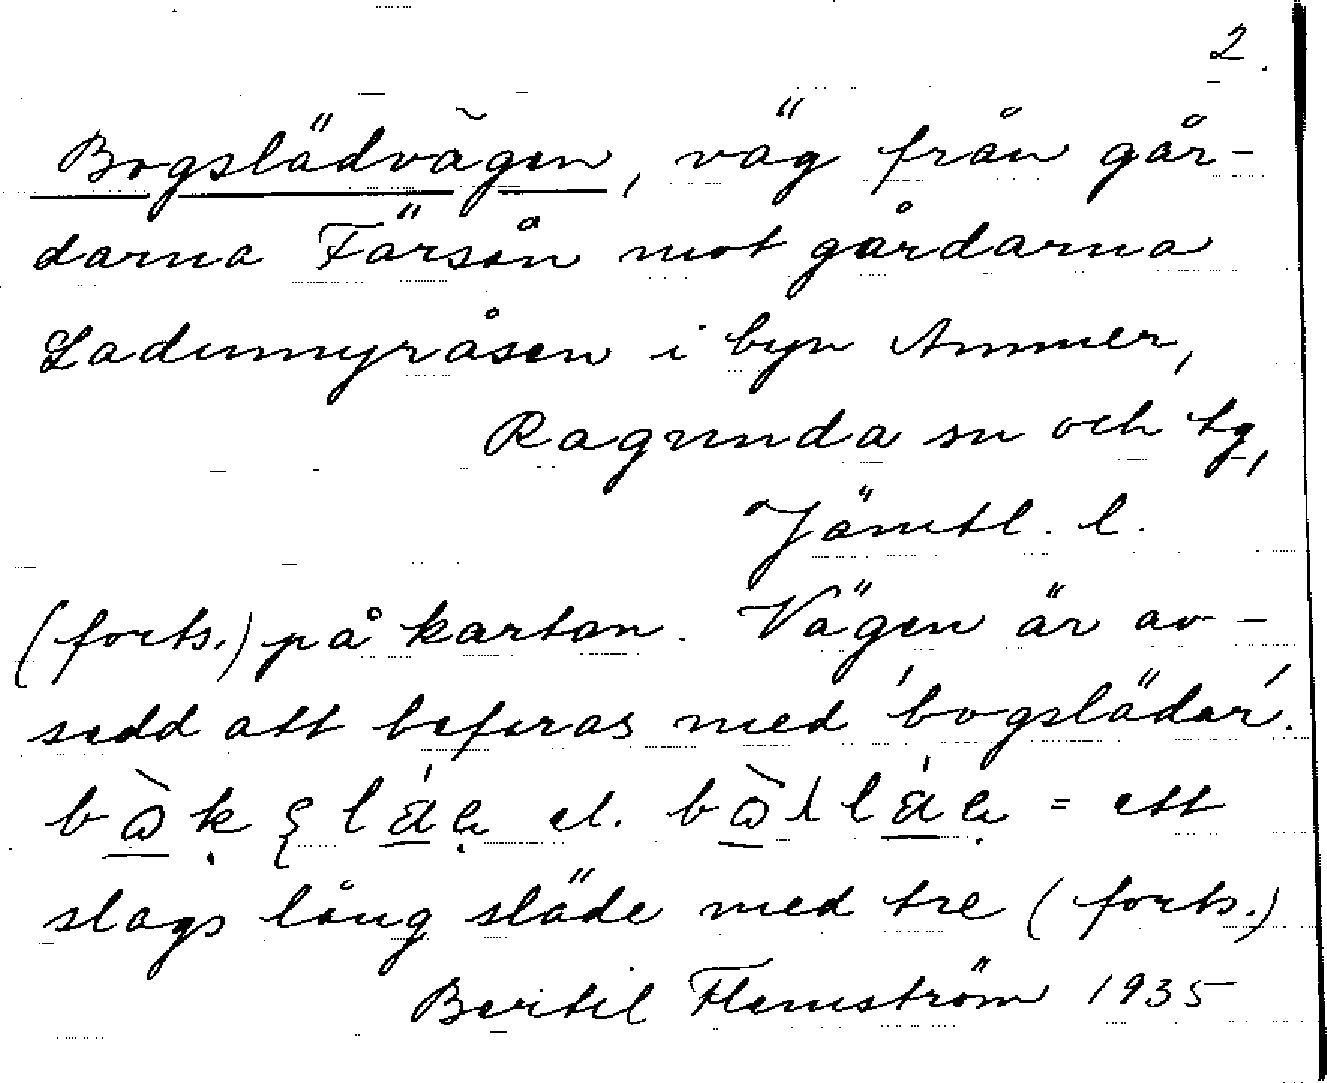 2.
Bogslädvägen, väg från går-
darna Färsån mot gårdarna
Ladumyråsen i byn Ammer,
Ragunda sn och tg,
Jämtl. l.
(forts.) på kartan. Vägen är av-
sedd att beferas med 'bogslädar'.
el. = ett
slags lång släde med tre (forts.)
Bertil Flemström 1935